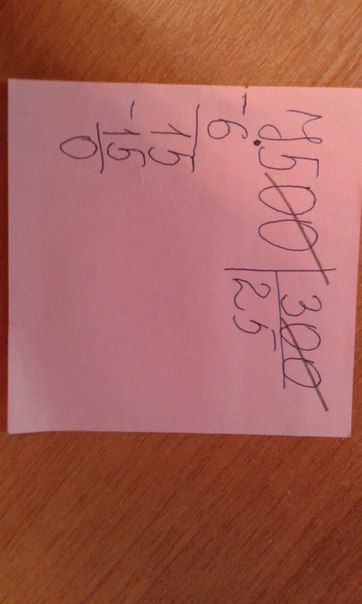 7500 | 300
- 6 | 25
15
- 15
0